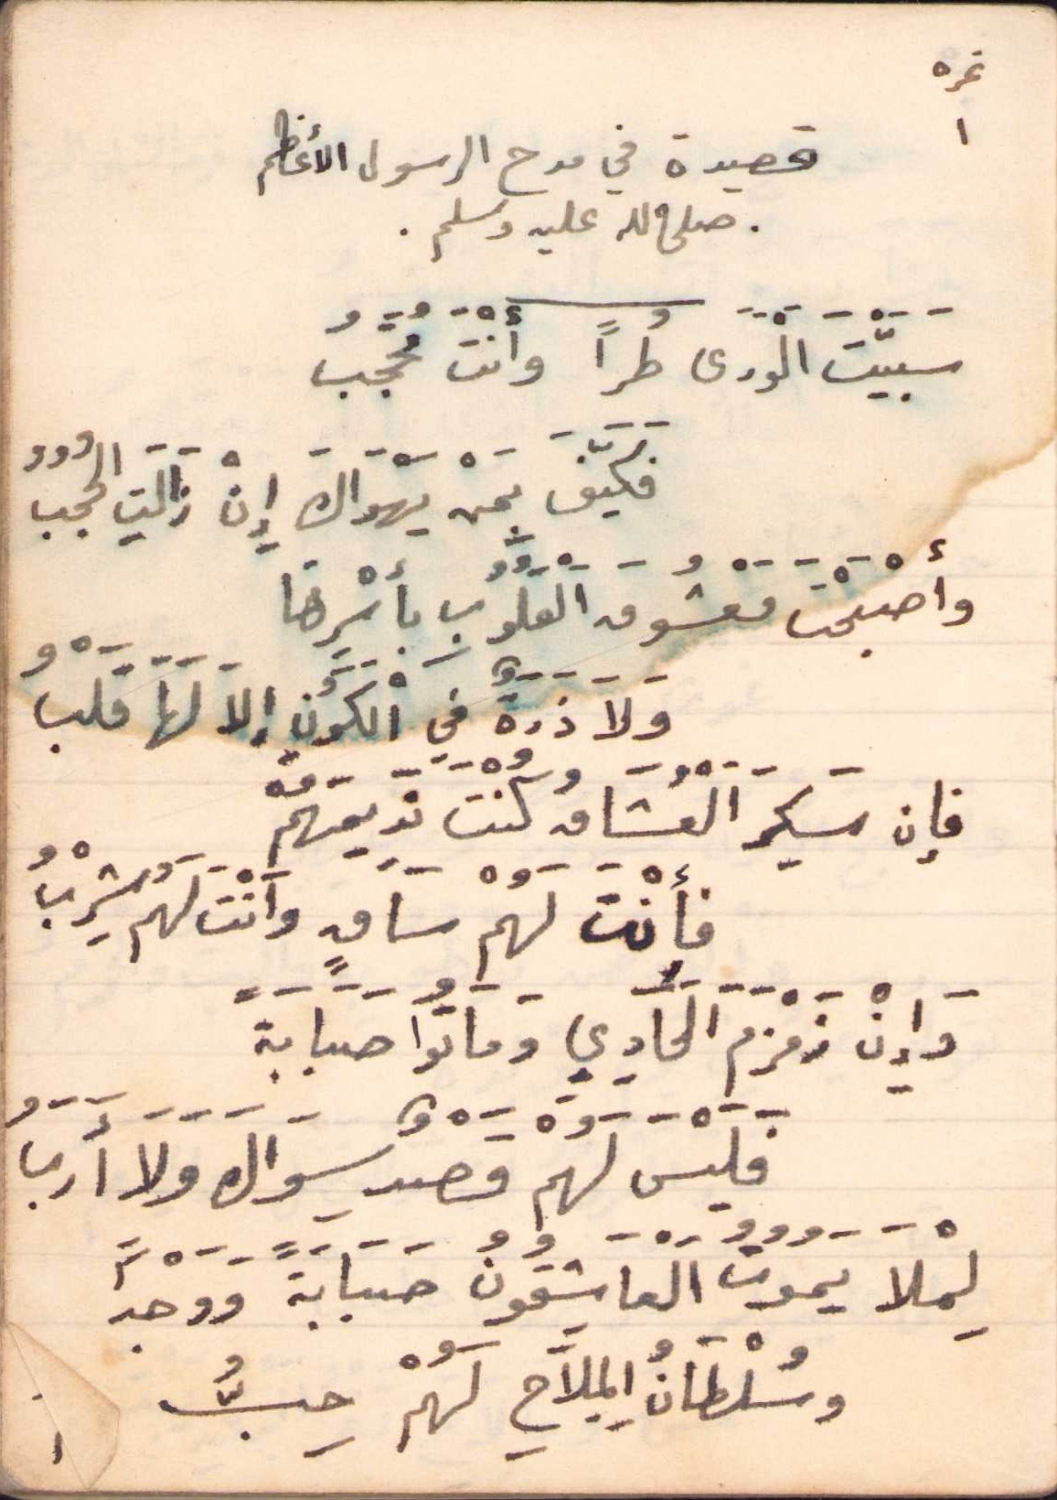 نمره
١
قصيدة في مدح الرسول الأعظم
. صلى الله عليه وسلم .
سَبَيْتَ الْوَرَى طُراً وأَنْتَ مُحَجَّبُ
فَكَيْفَ بِمَنْ يَهْوَاكَ إِنْ زَالَتِ الحُجُبُ
وأَصْبَحْتَ مَعْشُوقَ الْقُلُوبِ بِأَسْرِهَا
وَلاَ ذَرَةٌ فِي الْكَوْنِ إِلاَ لَهَا قَلْبُ
فإن سَكِرَ الْعُشَاقُ كُنْتَ نَدِيمَهُمْ
فأَنْتَ لَهُمْ سَاقٍ وأَنْتَ لَهُمْ شِرْبُ
وَإِنْ زَمْزَمَ الحَادِي وَمَاتُوا صَبَابَةً
فَلَيْسَ لَهُمْ قَصْدٌ سِوَاكَ وَلاَ أَرَبُ
لِمْلا يموتُ العَاشِقُونَ صَبَابَةً وَوَجْداً
وسُلْطَانُ المِلاَحِ لَهُمْ حِبُّ
١